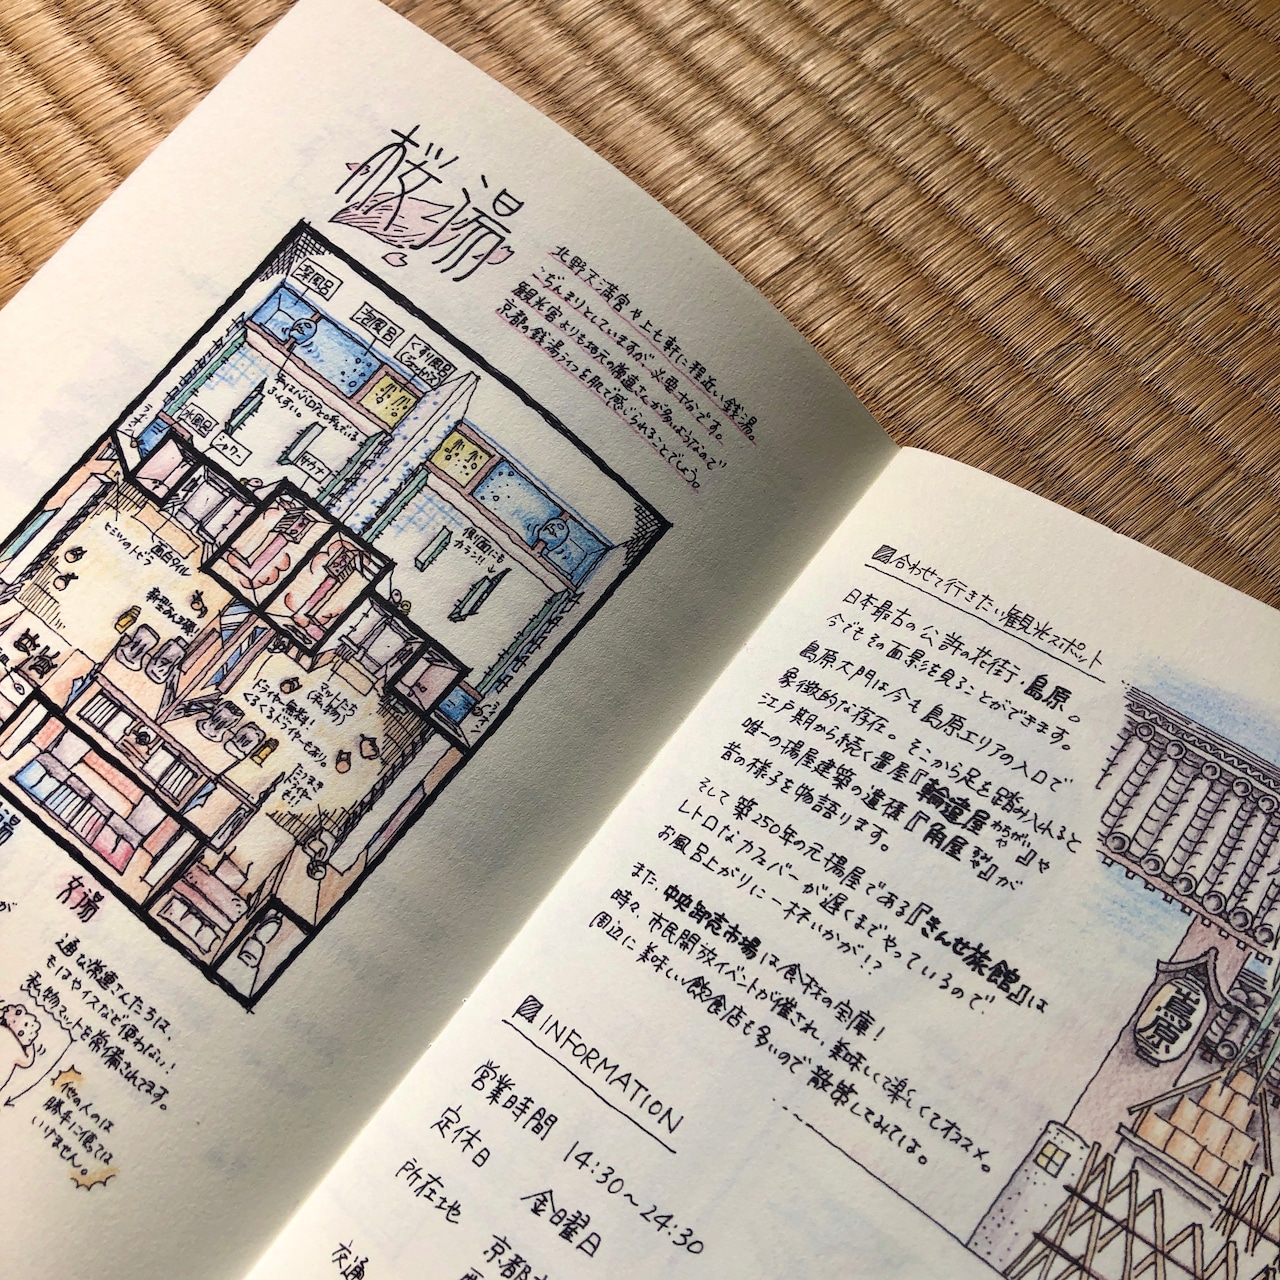 桜湯
北野天満宮や上七軒に程近い銭湯。
こぢんまりとしていますが必要十分です。
観光客よりも地元の常連さんが多いようなので
京都の銭湯ライフを肌で感じられることでしょう。
深風呂
泡風呂
くすり風呂
水風呂
シャワー
サウナ
側面にも
カラン!!
ヒミツのトビラ
面白タイル
マットたち
(私物)
ドライヤー無料!
女湯
通な常連さんたちは、
もはやイスなど使わない!
私物マットを常備されてます。
他の人のは
勝手に使っては
いけません。
合わせて行きたい観光スポット
日本最古の公許の花街・島原。
今でもその面影を見ることができます。
島原大門は今も島原エリアの入口で
象徴的な存在。そこから足を踏み入れると
江戸期から続く置屋『輪違屋わちがいや』や
唯一の揚屋建築の遺構『角屋すみや』が
昔の様子を物語ります。
そして築250年の元揚屋である『きんせ旅館』は
レトロなカフェバーが遅くまでやっているので、
お風呂上がりに一杯いかが!?
また、中央卸売市場は食材の宝庫!
時々、市民開放イベントが催され、美味しくて楽しくてオススメ。
周辺に美味しい飲食店も多いので散策してみては。
島原
INFORMATION
営業時間 14:30〜24:30
定休日 金曜日
所在地 京都
交通